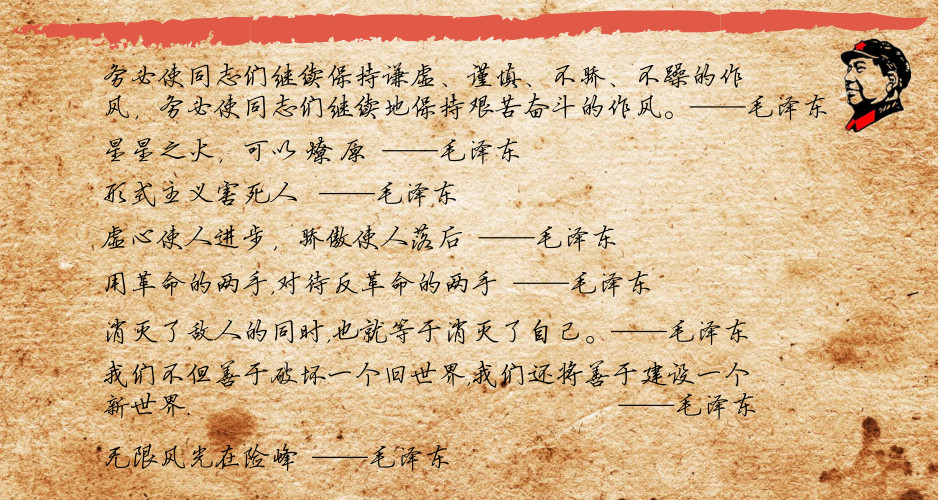 务必使同志们继续保持谦虚、谨慎、不骄、不躁的作
风，务必使同志们继续地保持艰苦奋斗的作风。——毛泽东
星星之火，可以 燎 原 ——毛泽东
形式主义害死人 ——毛泽东
虚心使人进步，骄傲使人落后 ——毛泽东
用革命的两手,对待反革命的两手 ——毛泽东
消灭了敌人的同时,也就等于消灭了自己。——毛泽东
我们不但善于破坏一个旧世界,我们还将善于建设一个
新世界. ——毛泽东
无限风光在险峰 ——毛泽东